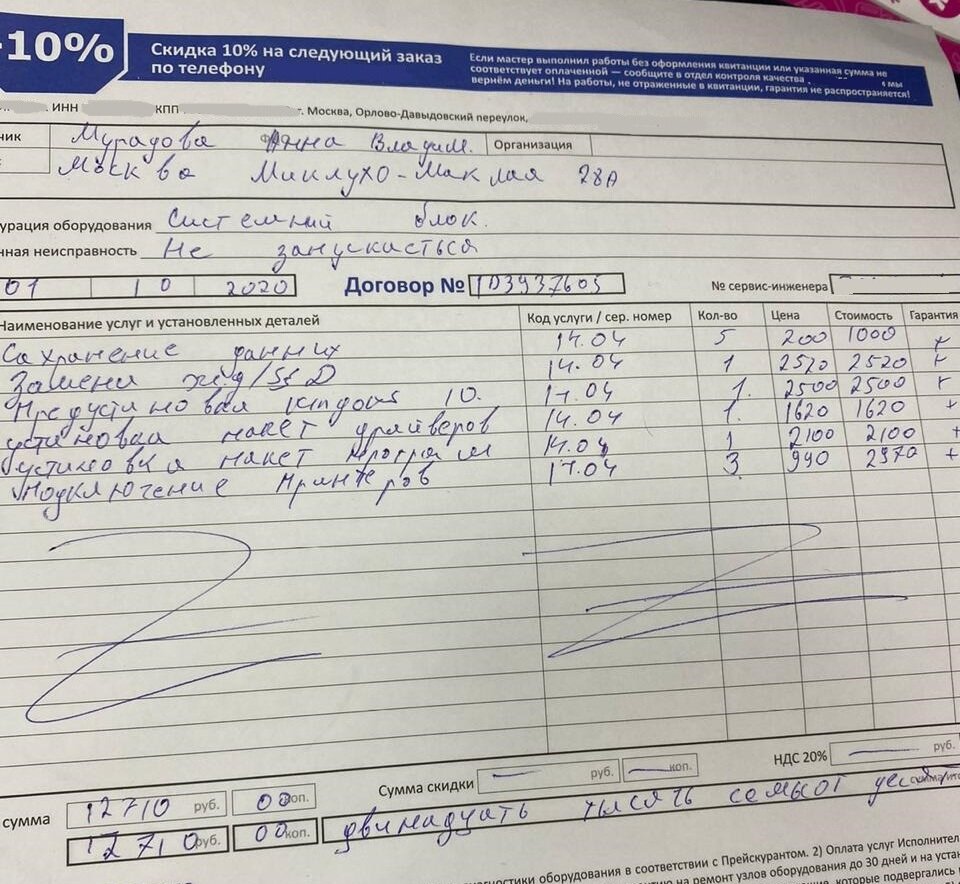 -10%
Скидка 10% на следующий заказ
по телефону
Если мастер выполнил работы без оформления квитанции или указанная сумма не
соответствует оплаченной — сообщите в отдел контроля качества мы
вернём деньги! На работы, не отраженные в квитанции, гарантия не распространяется!
ИНН КПП г. Москва, Орлово-Давыдовский переулок,
ник Мурадова Анна Владим. Организация
Москва Миклухо-Маклая 28А
урация оборудования Системний блок.
нная неисправность Не запускається
01 10 2020 Договор № 1D3937605 № сервис-инженера
Наименование услуг и установленных деталей Код услуги / сер. номер Кол-во Цена Стоимость Гарантия
Сохранение данних 14.04 5 200 1000 +
Замена жд/SSD 14.04 1 2520 2520 +
14.04 1. 2500 2500 +
установка пакет драйверов 14.04 1. 1620 1620 +
установка пакет програм 14.04 1 2100 2100 +
Подключение принтеров 14.04 3 990 2970 +
НДС 20% — руб.
Сумма скидки — руб. — коп.
сумма 12710 руб. 00 коп.
12710 руб. 00 коп. двинадцать тысячь семьсот десять
ностики оборудования в соответствии с Прейскурантом. 2) Оплата услуг Исполнител
на ремонт узлов оборудования до 30 дней и на устан
которые подвергались